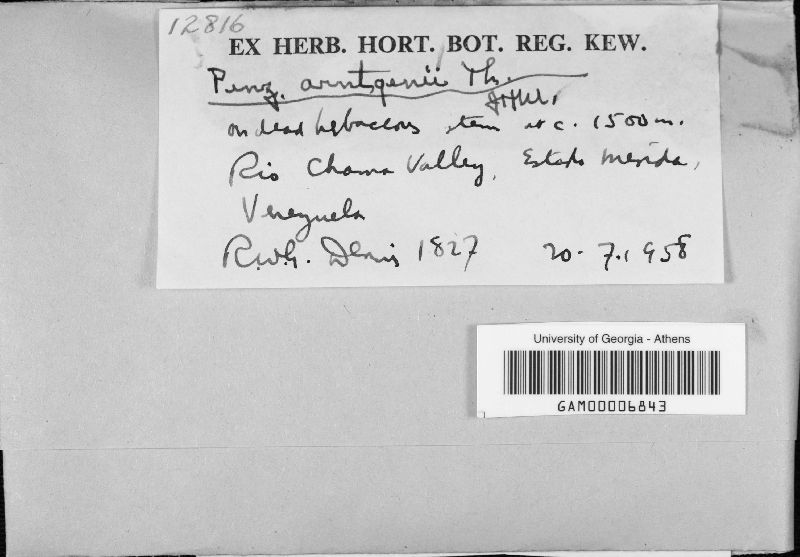 12816
EX HERB. HORT. BOT. REG. KEW.
Penz. arntgenii Th.
on dead herbaceous stem at c. 1500 m.
Rio Chama Valley, Estado Merida,
Venezuela
R.W.G. Dennis 1827 20.7.1958
University of Georgia - Athens
GAM00006843